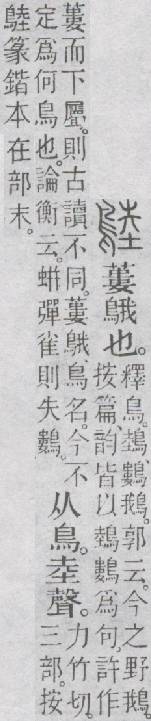 鵱 蔞鵝也。釋鳥。鵱鷜鵝。郭云。今之野鵝。
按篇、韵皆以鵱鷜爲句。許作
蔞而下屬。則古讀不同。蔞鵝鳥名。今不
定爲何鳥也。論衡云。蛢彈雀則失鷜。
从鳥。坴聲。力竹切。
三部。按
鵱篆鍇本在部末。